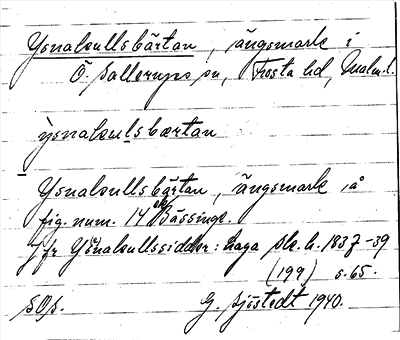 Ysnakullsbärtan, ängsmark i
Ö. Sallerups sn, Frosta hd, Malm.l.
ỳsnakulsbærtan
Ysnakullsbärtan, ängsmark å
fig. num. 14 Bässinge.
Jfr Ysnakullssidder: Laga sk. h. 1837-39
(199) s. 65.
SOS. G. Sjöstedt 1940.